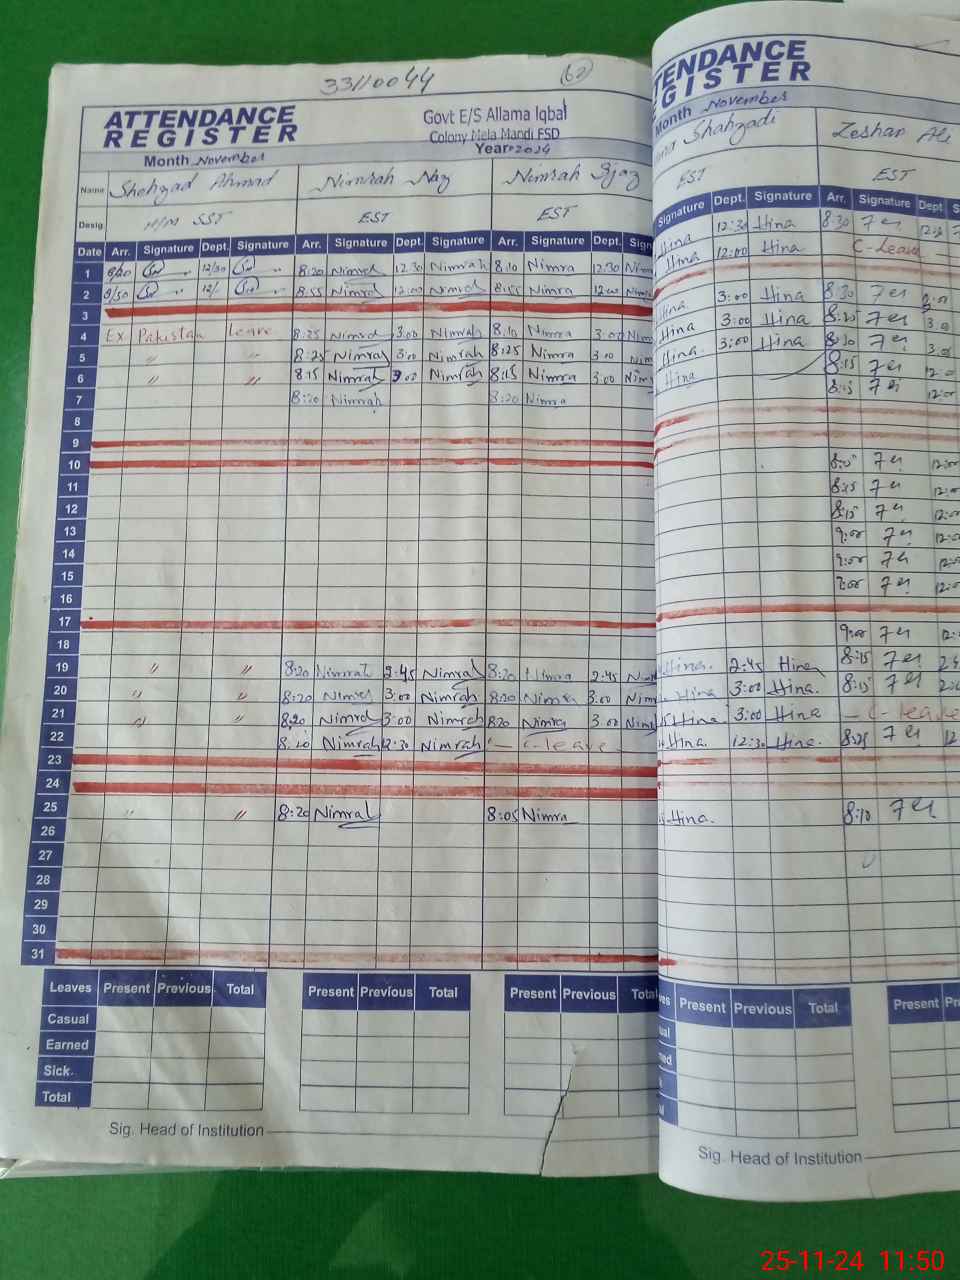 33110044
62
ATTENDANCE
REGISTER
Govt E/S Allama Iqbal
Colony Mela Mandi FSD
Month November
Year 2024
Name Shehzad Ahmad Nimrah Naz Nimrah Ijaz
Desig. H/M SST EST EST
Date Arr. Signature Dept. Signature Arr. Signature Dept. Signature Arr. Signature Dept. Sign
1 12/30 8:20 Nimrah 12.30 Nimrah 8:10 Nimra 12.30 Nim
2 8:55 Nimrah 12:00 Nimrah 8:55 Nimra 12:00 Nim
3
4 Ex Pakistan Leave 8:25 Nimrah 3:00 Nimrah 8:10 Nimra 3:00 Nim
5 〃 〃 8:25 Nimrah 3:00 Nimrah 8:25 Nimra 3.00 Nim
6 〃 〃 8:15 Nimrah 3:00 Nimrah 8:15 Nimra 3:00 Nim
7 8:20 Nimrah 8:20 Nimra
8
9
10
11
12
13
14
15
16
17
18
19 〃 〃 8:20 Nimrah 2:45 Nimrah 8:20 Nimra 2:45 Nim
20 〃 〃 8:20 Nimrah 3:00 Nimrah 8:20 Nimra 3.00 Nim
21 〃 〃 8:20 Nimrah 3:00 Nimrah 8:20 Nimra 3:00 Nim
22 8:20 Nimrah 12:30 Nimrah – C-leave –
23
24
25 〃 〃 8:20 Nimrah 8:05 Nimra
26
27
28
29
30
31
Leaves Present Previous Total Present Previous Total Present Previous Total
Casual
Earned
Sick.
Total
Sig. Head of Institution
TENDANCE
GISTER
Month November
Shahzadi Zeshan Ali
EST EST
Signature Dept. Signature Arr. Signature Dept. S
Hina 12:30 Hina 8:30
Hina 12:00 Hina C-Leave
Hina 3:00 Hina 8:30
Hina 3:00 Hina 8:25 3.00
Hina. 3:00 Hina 8:30 3.00
Hina 8:15
8:15 12:0
8:15 12:0
8:15 12:0
9:00 12:0
9:00 12:0
9:00 12:0
9:00 12:
Hina. 2:45 Hina 8:15
Hina 3:00 Hina. 8:15
Hina 3:00 Hina – C-leave
Hina. 12:30 Hina. 8:25 12
Hina. 8:10
es Present Previous Total Present Pr
ual
ned
Sig. Head of Institution
25-11-24 11:50